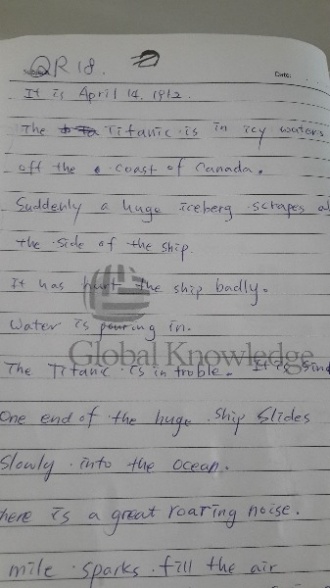 QR 18.
Date:
It is April 14, 1912.
The Titanic is in icy waters
off the coast of Canada.
Suddenly a huge iceberg scrapes
the side of the ship.
It has hurt the ship badly.
Water is pouring in.
Global Knowledge
The Titanic is in troble. It is
One end of the huge ship slides
Slowly into the ocean.
here is a great roaring noise.
mile sparks fill the air